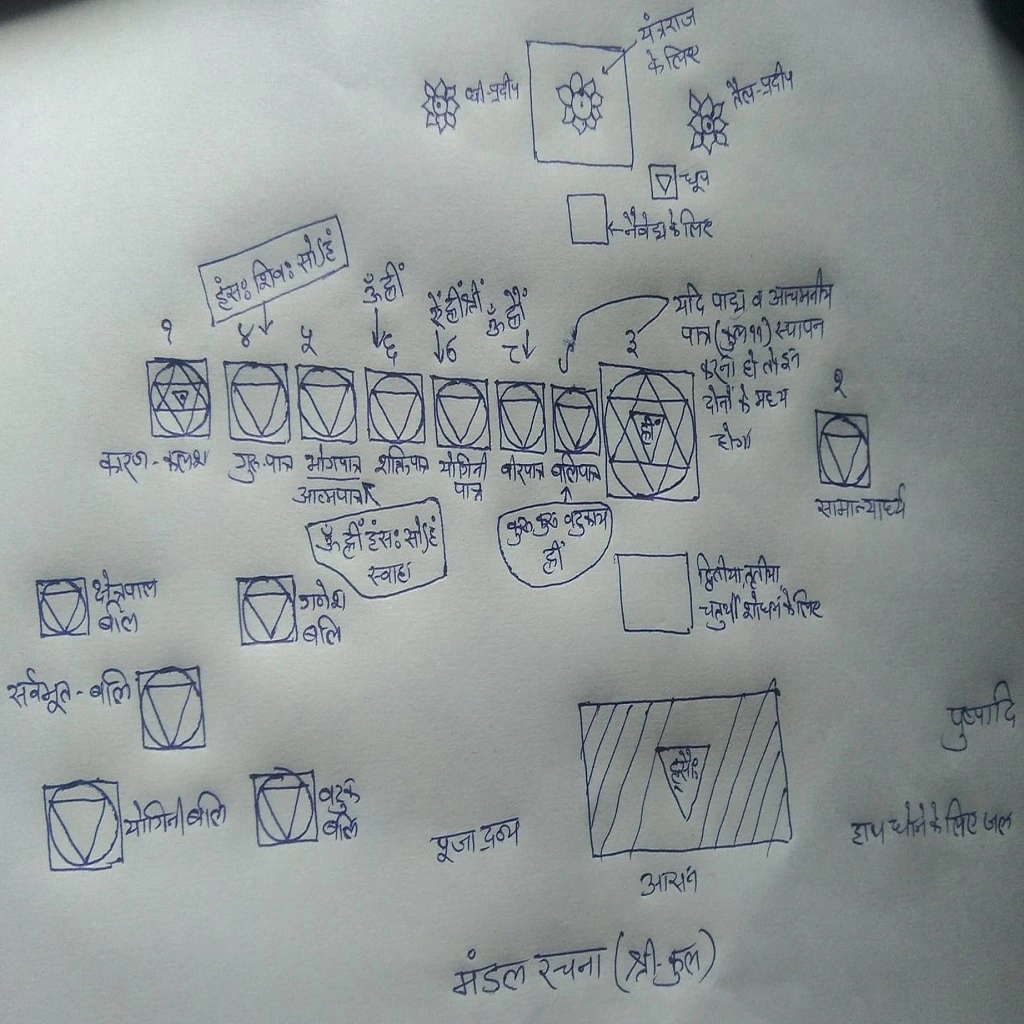 यंत्रराज
के लिए
घी-प्रदीप
तैल-प्रदीप
धूप
नैवेद्य के लिए
हंसः शिवः सोऽहं
ॐ ह्रीं
ऐं ह्रीं श्रीं
ॐ ह्रौं
यदि पाद्य व आचमनीय
पात्र (कुल ११) स्थापन
करना हो तो इन
दोनों के मध्य
होगा
१
४
५
६
७
८
९
३
२
ह्रीं
कारण-कलश
गुरु-पात्र
भोगपात्र
आत्मपात्र
शक्तिपात्र
योगिनी
पात्र
वीरपात्र
बलिपात्र
सामान्यार्घ्य
ॐ ह्रीं हंसः सोऽहं
स्वाहा
कुरु कुरु बटुकाय
ह्रीं
क्षेत्रपाल
बलि
गणेश
बलि
द्वितीया, तृतीया,
चतुर्थी शोधन के लिए
सर्वभूत-बलि
पुष्पादि
योगिनी बलि
बटुक
बलि
पूजा द्रव्य
हाथ धोने के लिए जल
आसन
मंडल रचना (श्री-कुल)